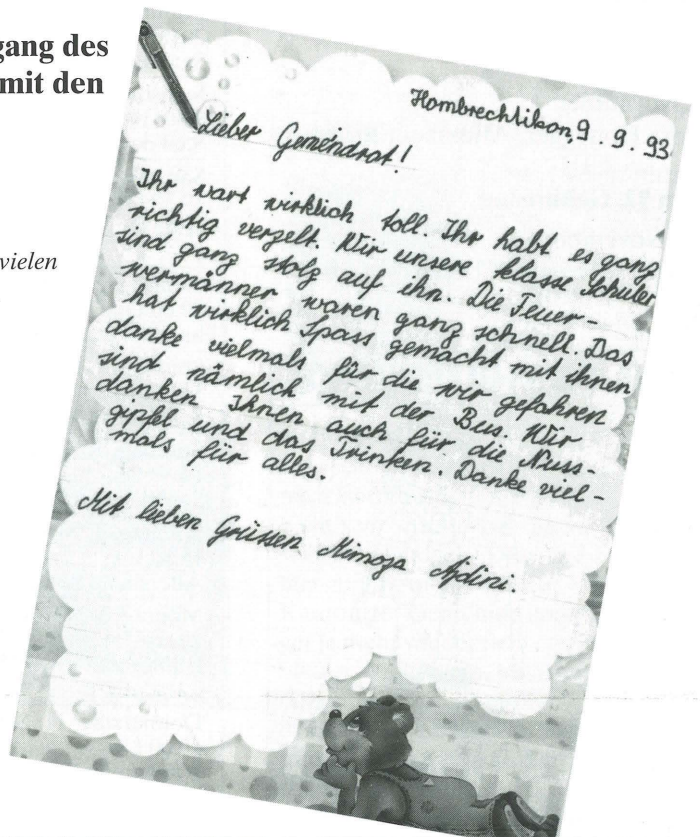 gang des
mit den
vielen
Hombrechtikon, 9. 9. 93
Lieber Gemeindrat!
Ihr wart wirklich toll. Ihr habt es ganz
richtig verzelt. Wir unsere klasse Schüler
sind ganz stolz auf ihn. Die Feuer-
wermänner waren ganz schnell. Das
hat wirklich Spass gemacht mit ihnen
danke vielmals für die wir gefahren
sind nämlich mit der Bus. Wir
danken Ihnen auch für die Nuss-
gipfel und das Trinken. Danke viel-
mals für alles.
Mit lieben Grüssen Mimoza Ajdini.